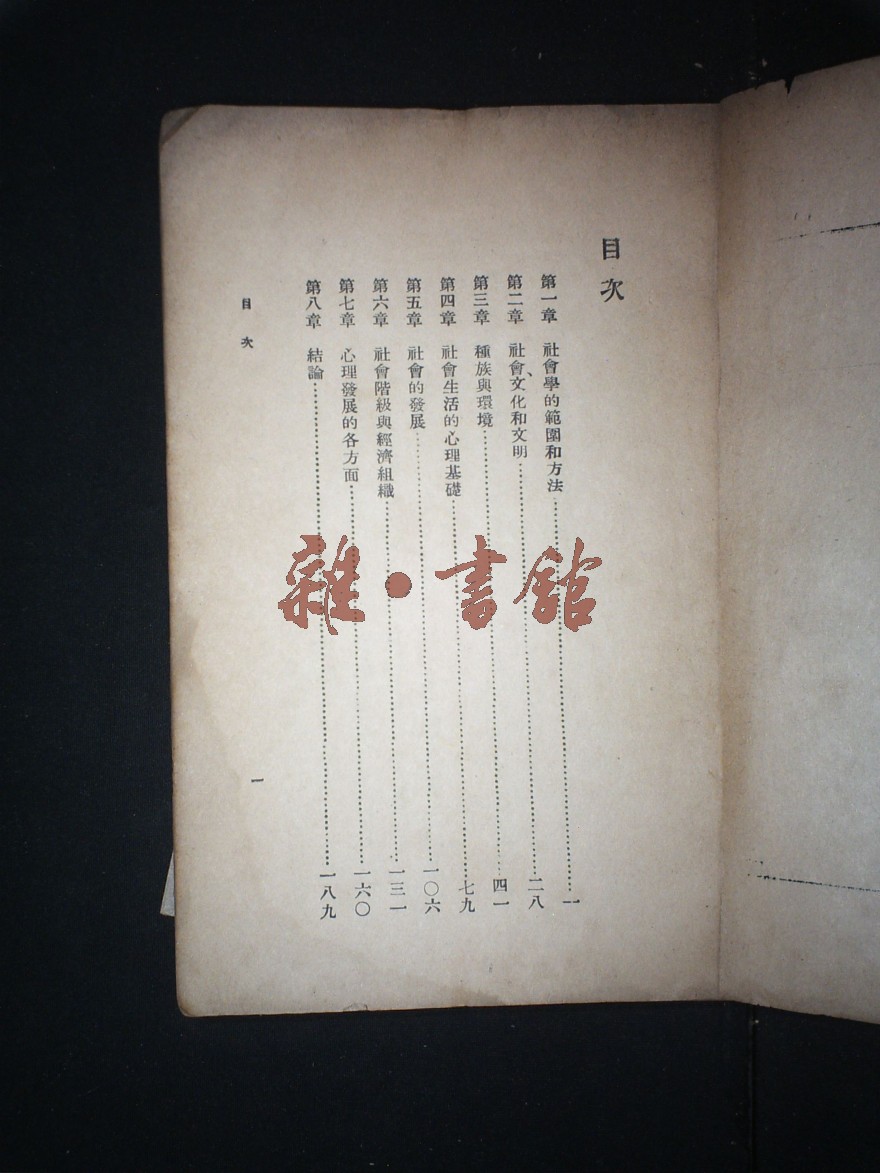 目次
第一章 社會學的範圍和方法……一
第二章 社會、文化和文明……二八
第三章 種族與環境……四一
第四章 社會生活的心理基礎……七九
第五章 社會的發展……一〇六
第六章 社會階級與經濟組織……一三一
第七章 心理發展的各方面……一六〇
第八章 結論……一八九
目次
一
雜·書館